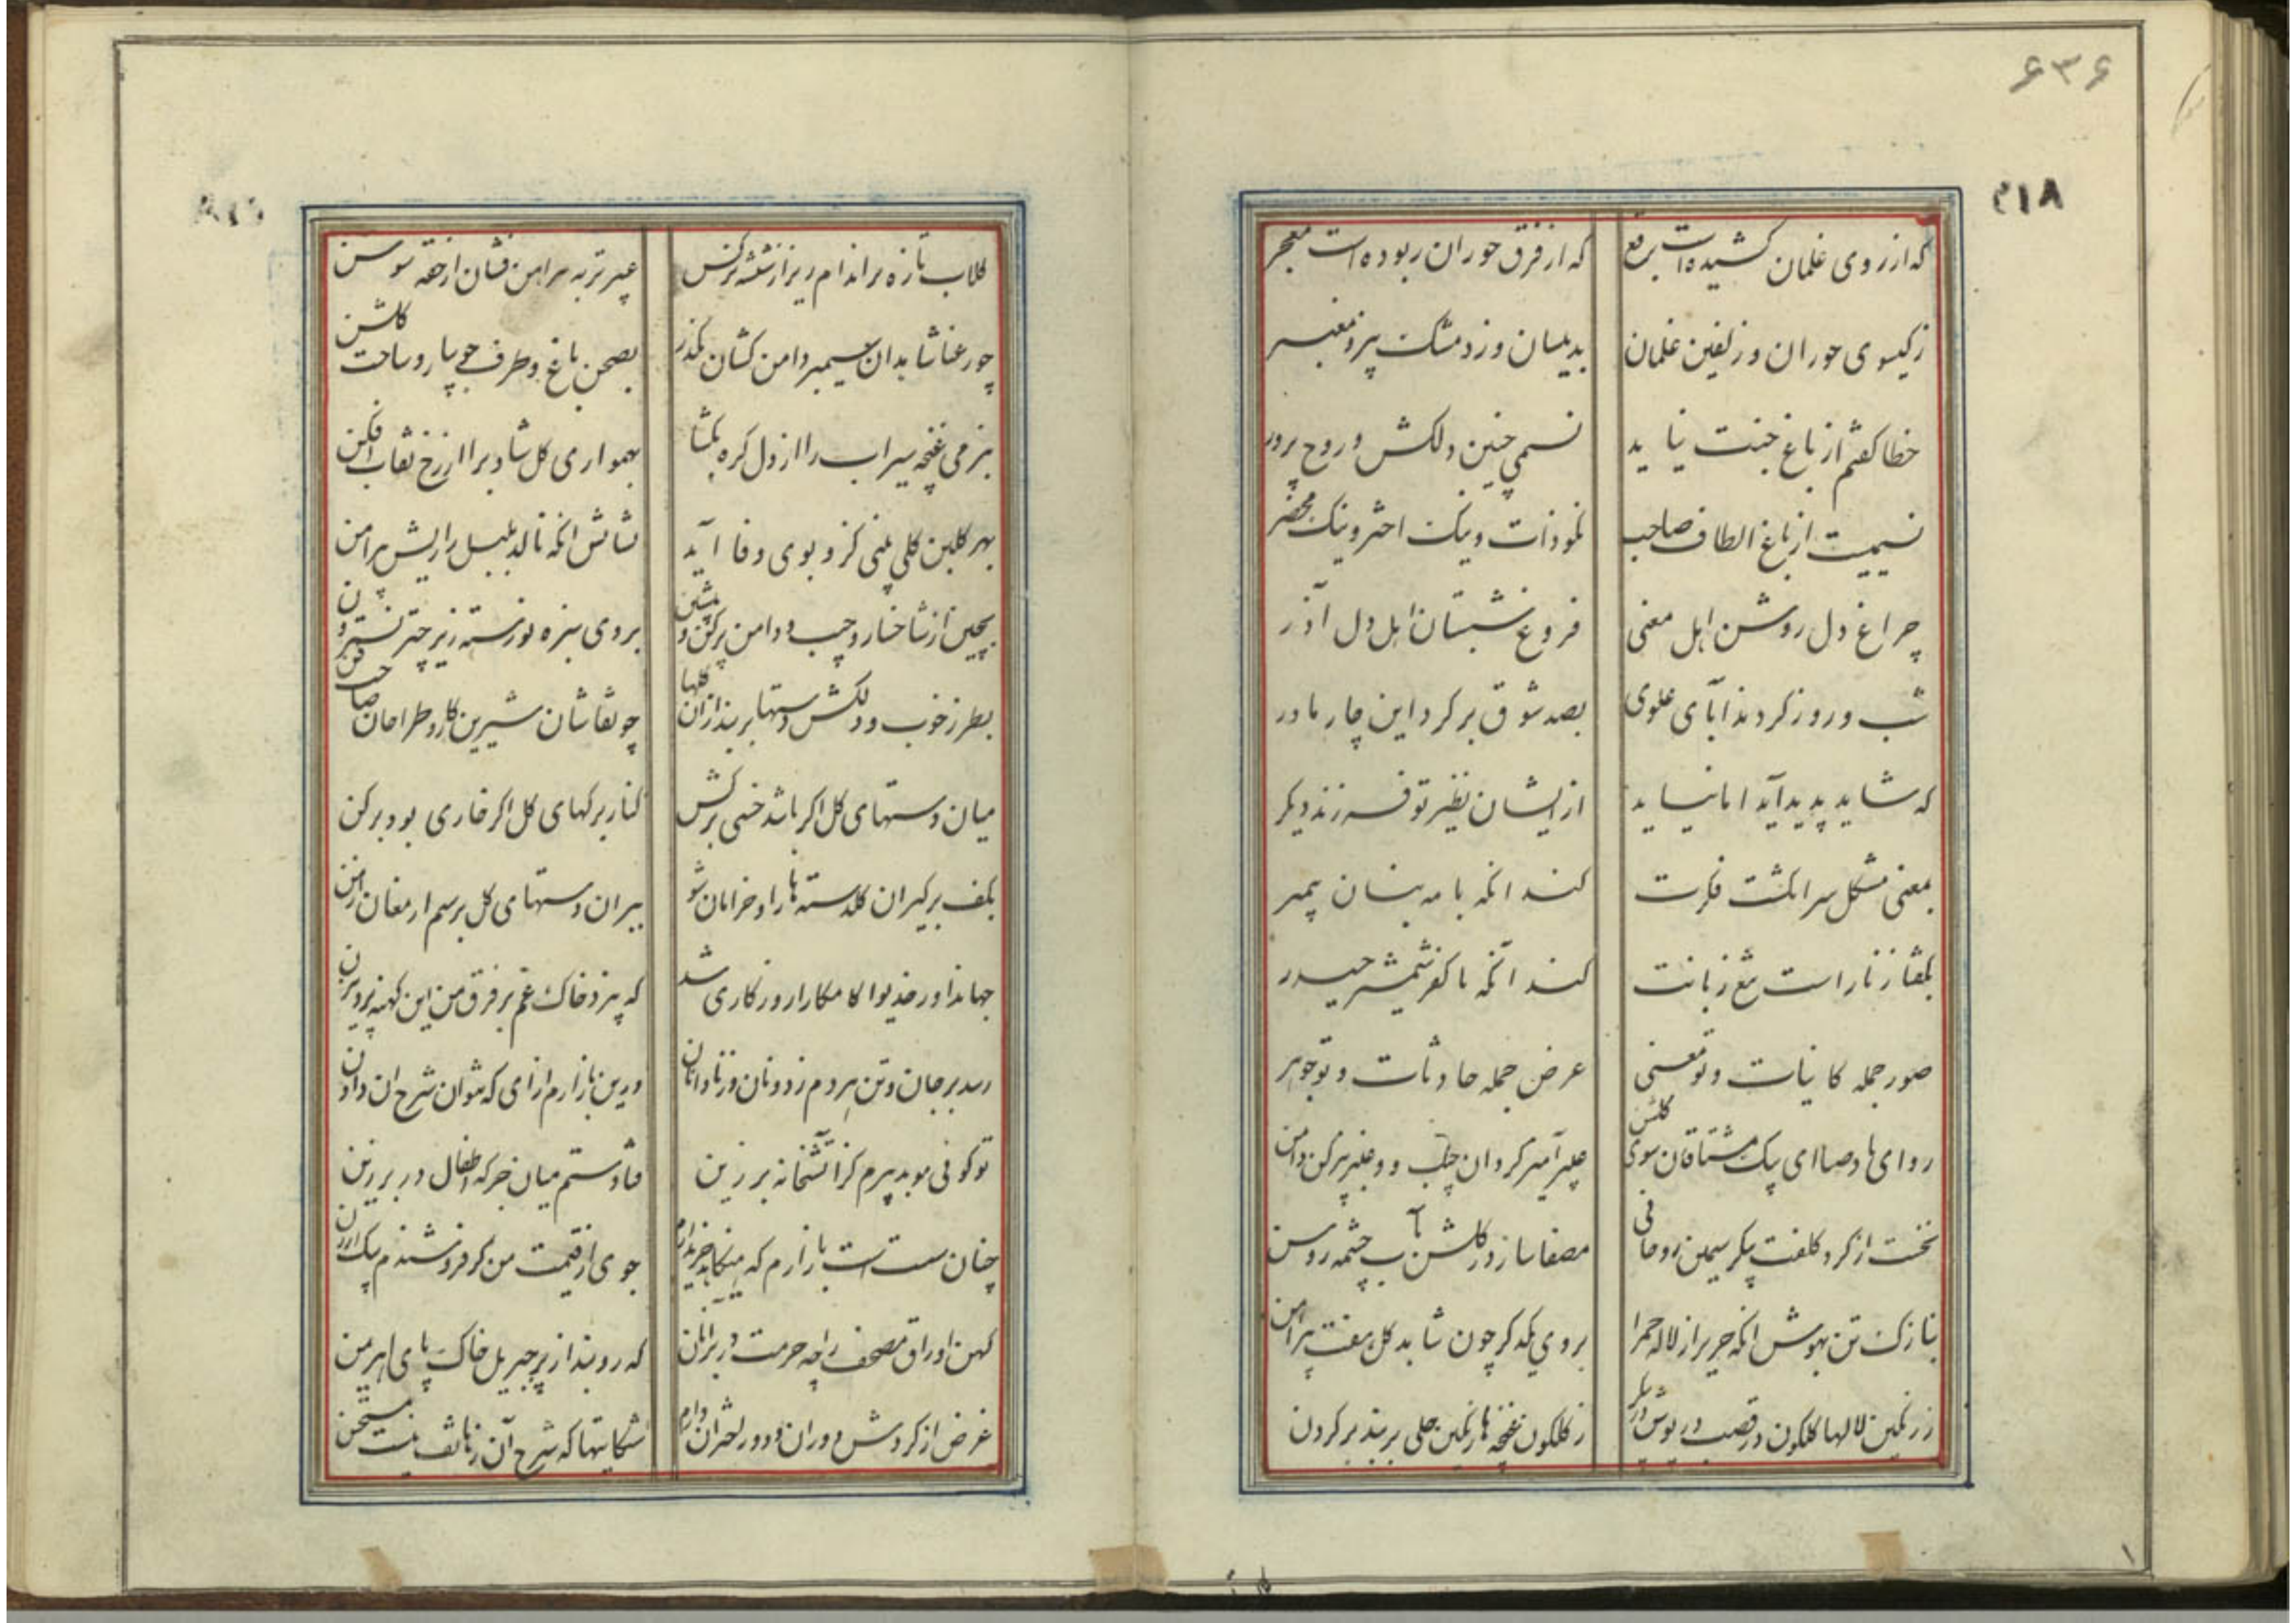 ۶۳۶
۲۱۸
که از روی غلمان کشیده است برقع
که از فرق حوران ربوده است معجر
ز کیسوی حوران و زلفین غلمان
بدینسان وزد مشک بیز و معنبر
خطا کفتم از باغ جنت نیاید
نسیمی چنین دلکش و روح پرور
نسیمیست از باغ الطاف صاحب
نکو ذات و نیک اختر و نیک محضر
چراغ دل روشن اهل معنی
فروغ شبستان اهل دل آذر
شب و روز کردند آبای علوی
بصد شوق بر کرد این چار مادر
که شاید پدید آید اما نیاید
از ایشان نظیر تو فرزند دیکر
بمعنی مشکل سرانکشت فکرت
کند آنکه با مه بنان پیمبر
بکفار زنار است تیغ زبانت
کند آنکه با کفر شمشیر حیدر
صور جمله کاینات و تو معنی
عرض جمله حادثات و تو جوهر
رو ای باد صبا ای پیک مشتاقان سوی کلشن
عبیرآمیز کردان جیب و عنبربیز کن دامن
نخست از کرد کلفت پیکر سیمین روحانی
مصفا ساز در کلشن بآب چشمه روشن
بنازک تن بپوش آنکه حریر از لاله حمرا
بروی یکدکر چون شاهد کل هفت پیراهن
ز رنکین لالها کلکون قصب در پوش در پیکر
ز کلکون غنچه ها رنکین حلی بربند بر کردن
کلاب تازه بر اندام ریز از شیشه نرکس
عبیر تر به پیراهن فشان از حقه سوسن
چو رعنا شاهدان سیمبر دامن کشان بکذر
بصحن باغ و طرف جویبار و ساحت کلشن
بنرمی غنچه سیراب را از دل کره بکشا
بهمواری کل شاداب را از رخ نقاب افکن
بهر کلبن کلی بینی کزو بوی وفا آید
نشانش آنکه نالد بلبل زاریش پیرامن
بچین از شاخسار و جیب و دامن پر کن و بنشین
بروی سبزه نورسته زیر چتر نسترون
بطرز خوب و دلکش دستها بربند از آن کلها
چو نقاشان شیرین کار و طراحان صاحب فن
میان دستهای کل اکر باشد خسی برکش
کنار برکهای کل اکر خاری بود برکن
بکف برکیر آن کلدسته ها را و خرامان شو
ببر آن دستهای کل برسم ارمغان از من
جهاندارا خدیوا کامکارا روزکاری شد
که بیزد خاک غم بر فرق من این کهنه پرویزن
رسد بر جان و تن هردم ز دونان و ز نادانان
درین بازارم آزاری که نتوان شرح آن دادن
تو کوئی موبد پیرم کز آتشخانه برزین
فتادستم میان جرکه اطفال در برزن
چنان سست است بازارم که میکاهد خریدارم
جوی از قیمت من کر فروشندم بیک ارزن
کهن اوراق مصحف را چه حرمت در بر آنان
که روبند از پر جبریل خاک پای اهریمن
غرض از کردش دوران و دور اختران دارم
شکایتها که شرح آن ز ناثقه نیست مستحسن